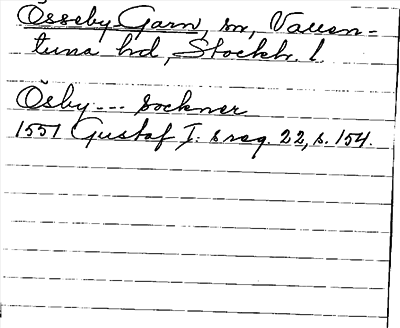 Össeby Garn, sn, Vallen-
tuna hd, Stockh. l.
Ösby --- sockner
1551 Gustaf I:s reg. 22, s. 154.